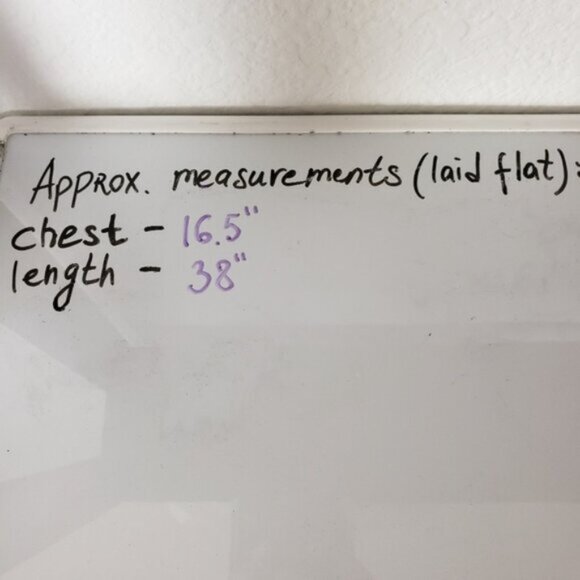 Approx. measurements (laid flat):
chest - 16.5"
length - 38"